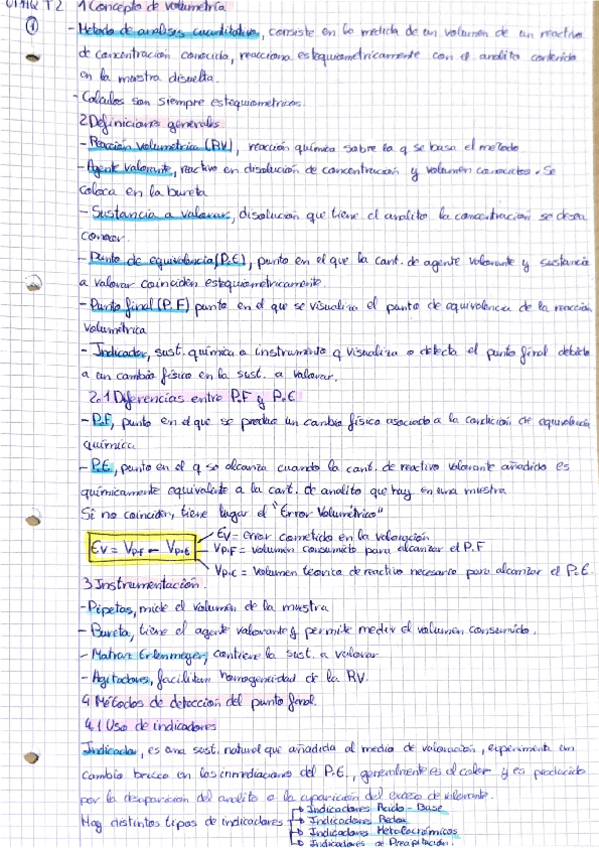 T2 1 Concepto de volumetría
①
- Método de análisis cuantitativo, consiste en la medida de un volumen de un reactivo
de concentración conocida, reacciona estequiometricamente con el analito contenido
en la muestra disuelta.
- Calculos son siempre estequiometricos.
2 Definiciones generales
- Reacción volumetrica (RV), reacción química sobre la q se basa el metodo
- Agente valorante, reactivo en disolución de concentracion y volumen conocidos. Se
coloca en la bureta
- Sustancia a valorar, disolución que tiene el analito la concentración se desea
conocer.
- Punto de equivalencia (P.E), punto en el que la cant. de agente valorante y sustancia
a valorar coinciden estequiometricamente.
- Punto final (P.F) punto en el que se visualiza el punto de equivalencia de la reacción
volumétrica
- Indicador, sust. química o instrumento q visualiza o detecta el punto final debido
a un cambio físico en la sust. a valorar.
2.1 Diferencias entre P.F y P.E
- P.F, punto en el que se produce un cambio físico asociado a la condición de equivalencia
química
- P.E, punto en el q se alcanza cuando la cant. de reactivo valorante añadido es
químicamente equivalente a la cart. de analito que hay en una muestra
Si no coinciden, tiene lugar el "Error Volumétrico"
Ev = error cometido en la valoración
Ev = VP.F - VP.E
VP.F = volumen consumido para alcanzar el P.F
VP.E = Volumen teorico de reactivo necesario para alcanzar el P.E.
3 Instrumentación.
- Pipetas, mide el volumen de la muestra
- Bureta, tiene el agente valorante y permite medir el volumen consumido.
- Matraz Erlenmeyer, contiene la sust. a valorar
- Agitadores, facilitan homogeneidad de la RV.
4 Métodos de detección del punto final.
4.1 Uso de indicadores
Indicador, es una sust. natural que añadida al medio de valoración, experimenta un
cambio brusco en las inmediaciones del P.E., generalmente es el color y es producido
por la desaparición del analito o la aparición del exceso de valorante.
Hay distintos tipos de indicadores
Indicadores Acido - Base
Indicadores Redox
Indicadores Metalocrómicos
Indicadores de Precipitación.